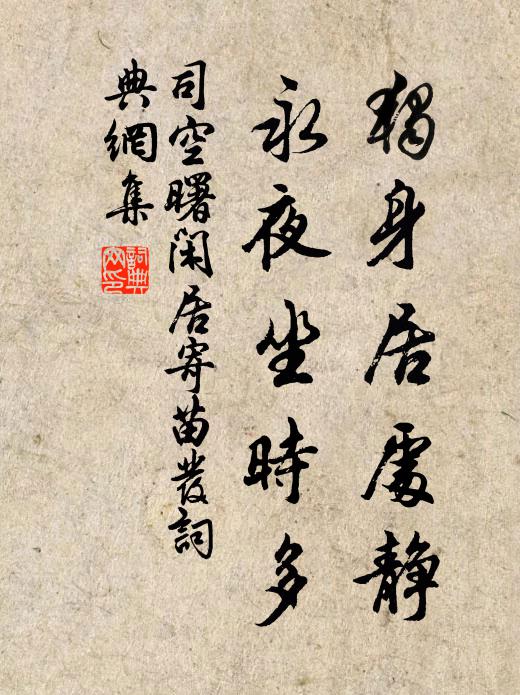 獨身居處静
永夜坐時多
司空曙閑居寄苗發詞
典網集
詞典
網印